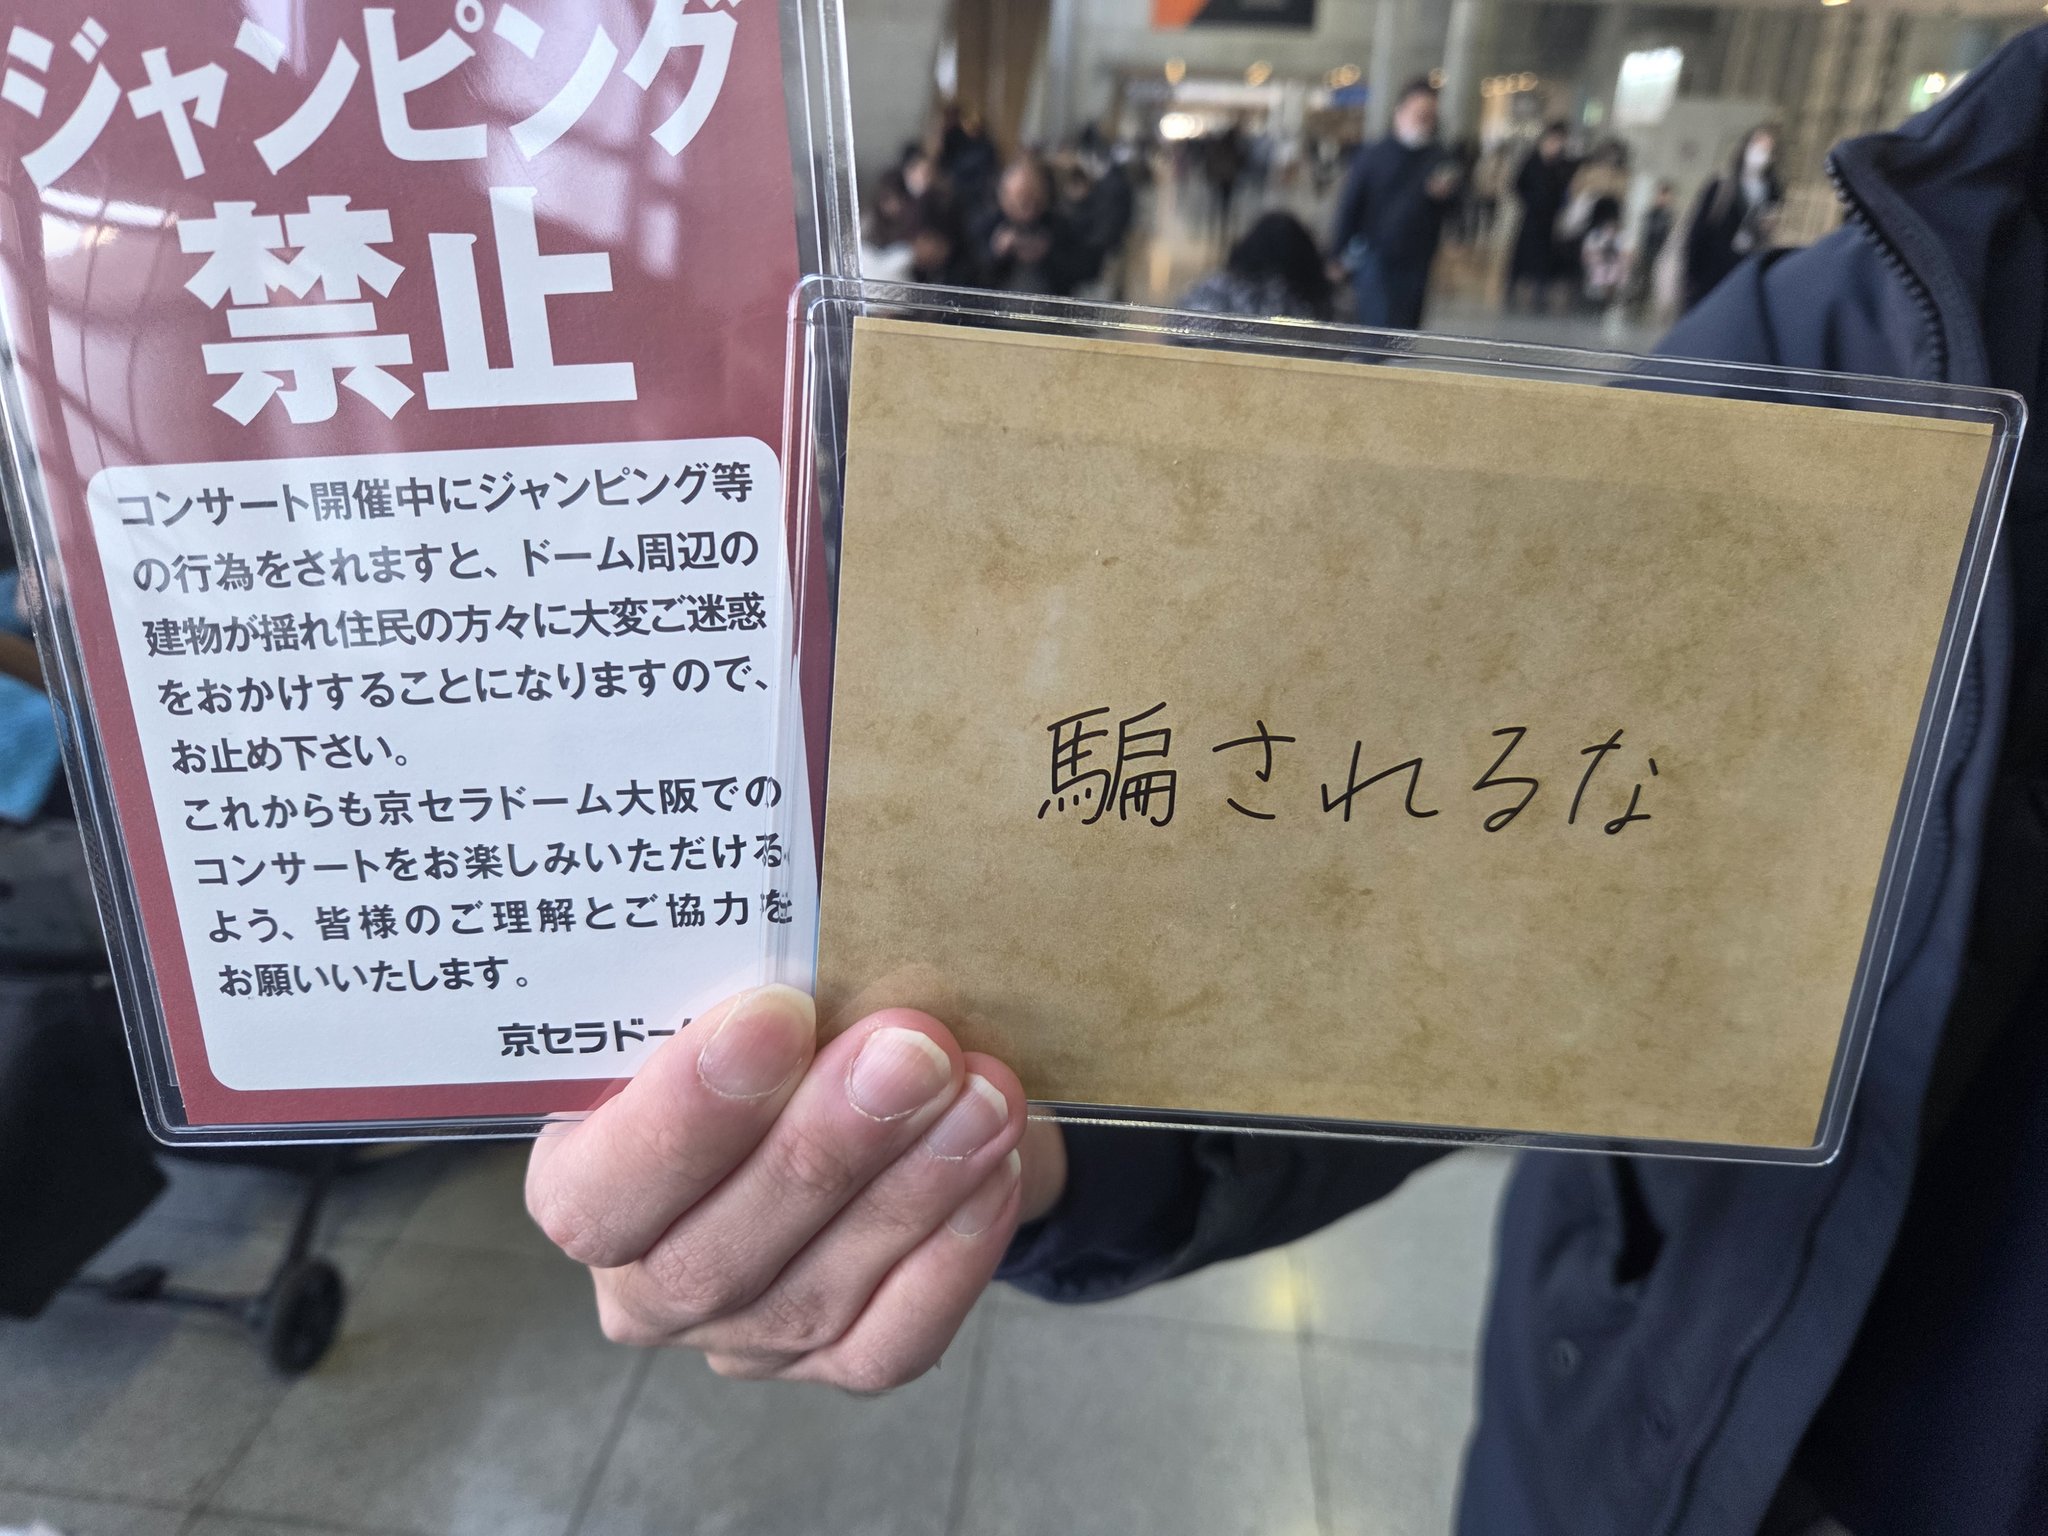 ジャンピング
禁止
コンサート開催中にジャンピング等
の行為をされますと、ドーム周辺の
建物が揺れ住民の方々に大変ご迷惑
をおかけすることになりますので、
お止め下さい。
これからも京セラドーム大阪での
コンサートをお楽しみいただける
よう、皆様のご理解とご協力を
お願いいたします。
京セラドー
騙されるな